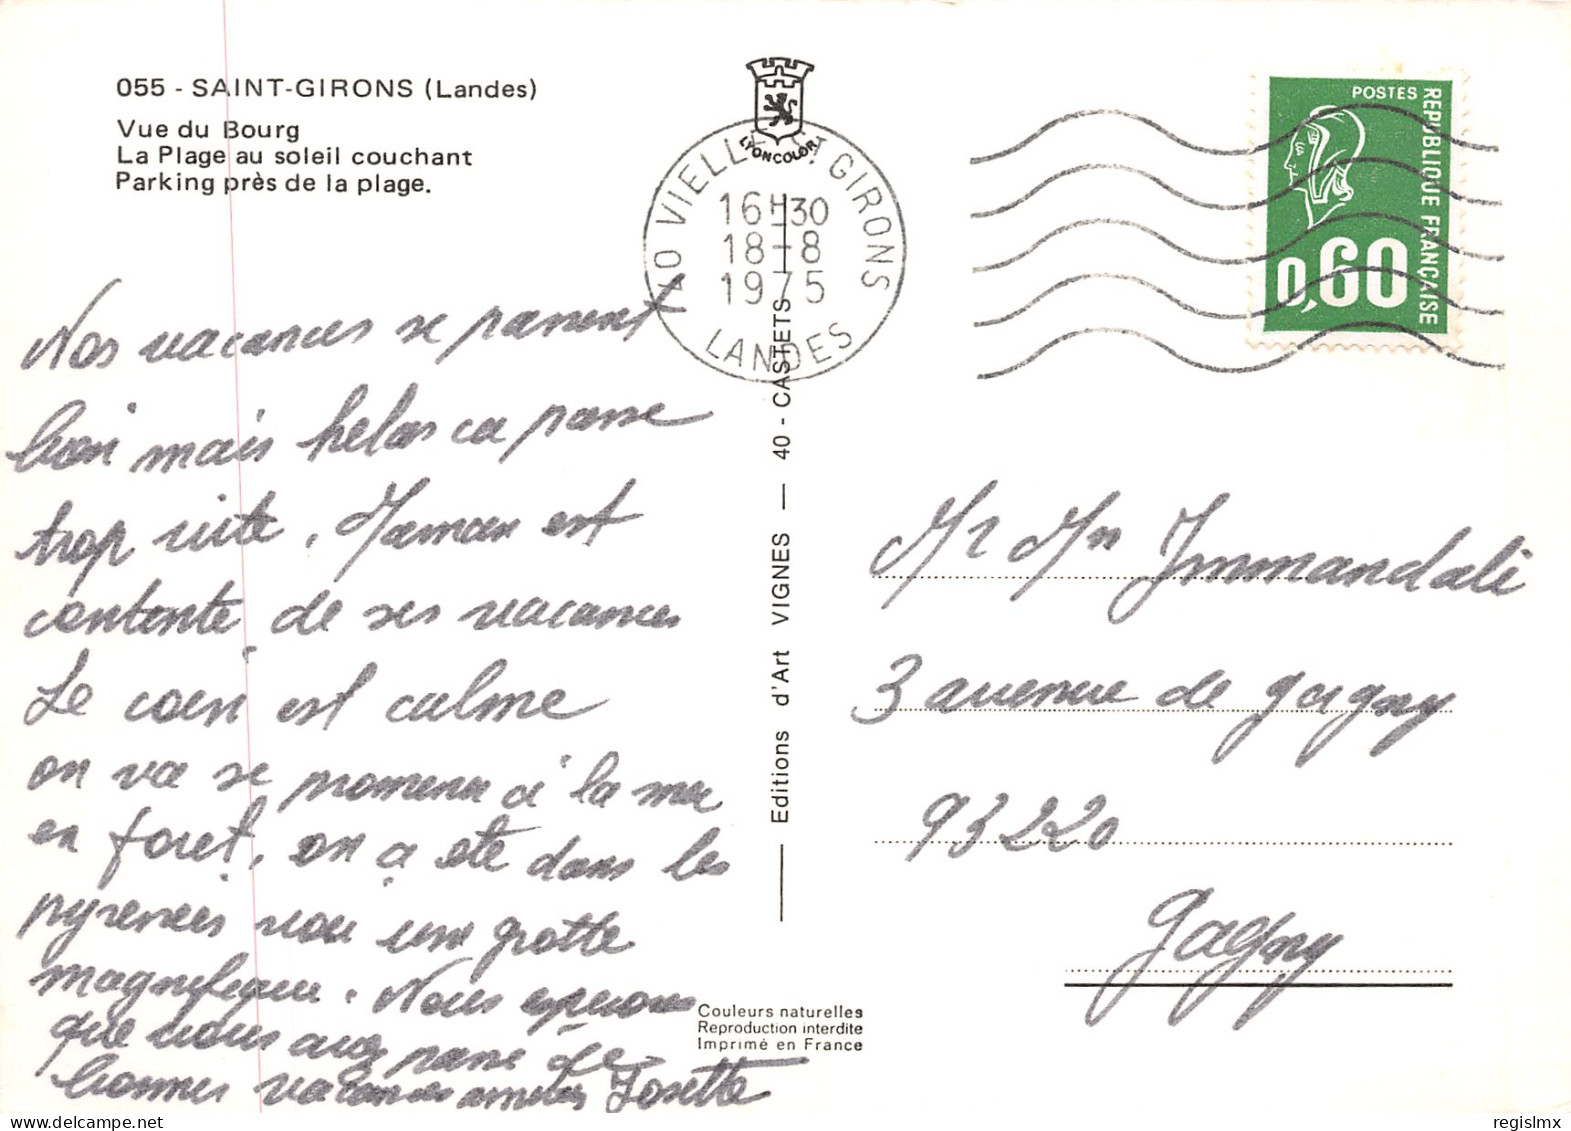 055 - SAINT-GIRONS (Landes)
Vue du Bourg
La Plage au soleil couchant
Parking près de la plage.
LYONCOLOR
40 VIELLE ST GIRONS
16H30
18-8
1975
LANDES
POSTES
REPUBLIQUE FRANÇAISE
0,60
Nos vacances se passent
bien mais helas ca passe
trop vite. Maman est
contente de ses vacances
Le coin est calme
on va se promener à la mer
en foret, on a eté dans les
pyrenées voir une grotte
magnifique. Nous esperons
que vous avez passé de
bonnes vacances amities Josette
Editions d'Art VIGNES — 40 - CASTETS
Mr Mm Immandali
3 avenue de gagny
93220
Gagny
Couleurs naturelles
Reproduction interdite
Imprimé en France
regislmx